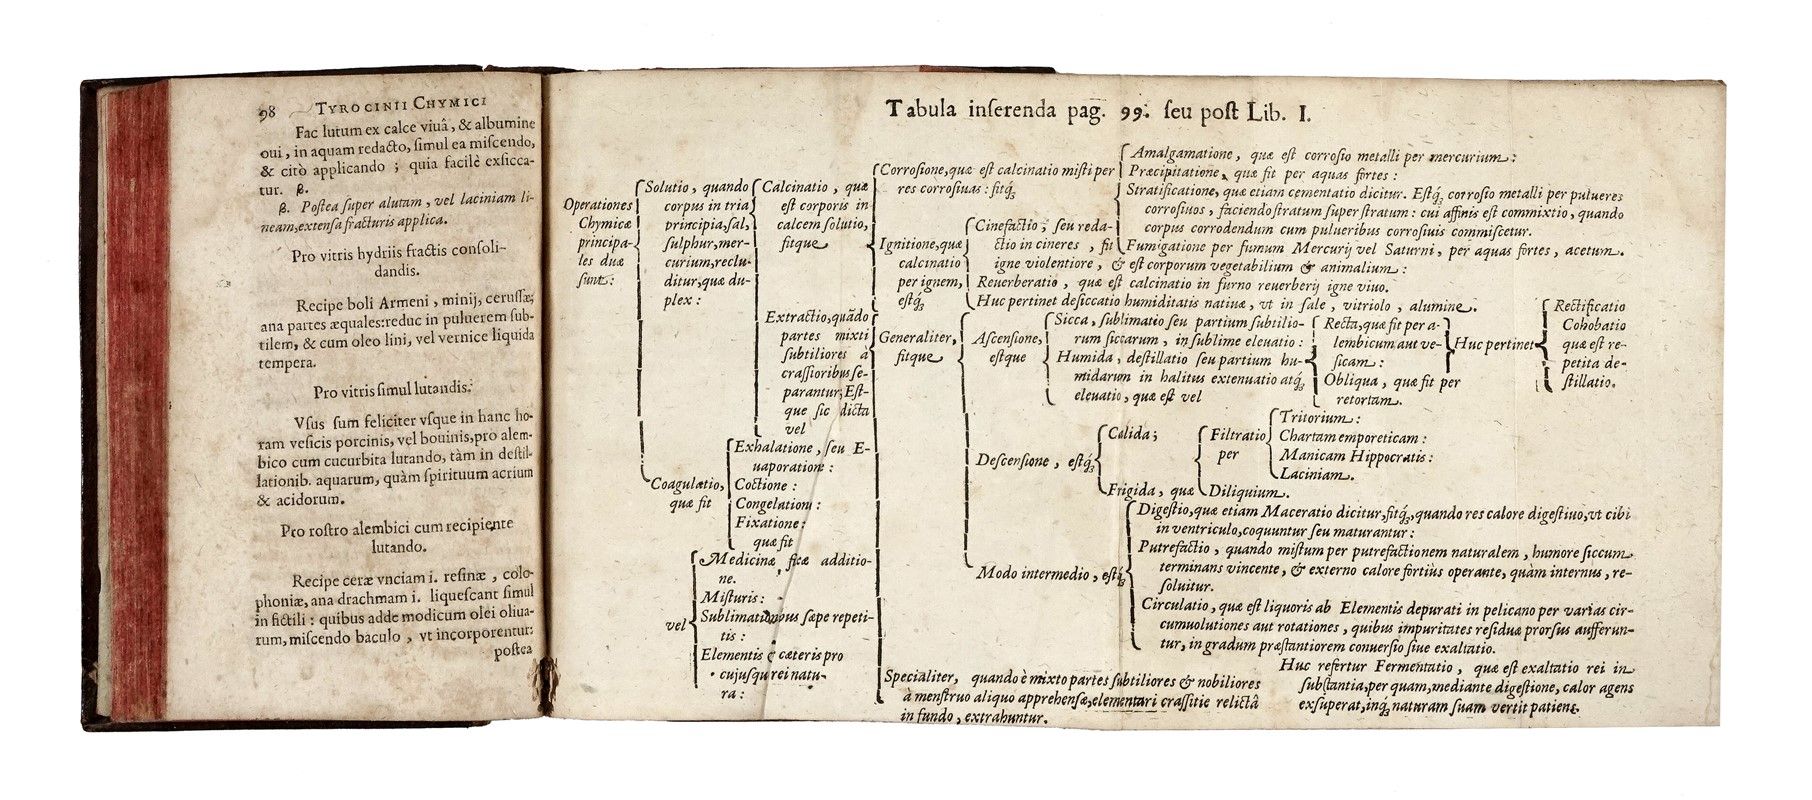 98 TYROCINII CHYMICI
Fac lutum ex calce viuâ, & albumine
oui, in aquam redacto, simul ea miscendo,
& citò applicando; quia facilè exsicca-
tur. β.
β. Postea super alutam, vel laciniam li-
neam, extensa fracturis applica.
Pro vitris hydriis fractis consoli-
dandis.
Recipe boli Armeni, minij, cerussæ;
ana partes æquales: reduc in puluerem sub-
tilem, & cum oleo lini, vel vernice liquida
tempera.
Pro vitris simul lutandis.
Vsus sum feliciter vsque in hanc ho-
ram vesicis porcinis, vel bouinis, pro alem-
bico cum cucurbita lutando, tàm in destil-
lationib. aquarum, quàm spirituum acrium
& acidorum.
Pro rostro alembici cum recipiente
lutando.
Recipe ceræ vnciam i. resinæ, colo-
phoniæ, ana drachmam i. liquescant simul
in fictili: quibus adde modicum olei oliua-
rum, miscendo baculo, vt incorporentur:
postea
Tabula inserenda pag. 99. seu post Lib. I.
Operationes
Chymicæ
principa-
les duæ
sunt:
Solutio, quando
corpus in tria
principia, sal,
sulphur, mer-
curium, reclu-
ditur, quæ du-
plex:
Calcinatio, quæ
est corporis in
calcem solutio,
fitque
Corrosione, quæ est calcinatio misti per
res corrosiuas: fitq́₃
Amalgamatione, quæ est corrosio metalli per mercurium:
Præcipitatione, quæ fit per aquas fortes:
Stratificatione, quæ etiam cementatio dicitur. Estq́₃ corrosio metalli per pulueres
corrosiuos, faciendo stratum super stratum: cui affinis est commixtio, quando
corpus corrodendum cum pulueribus corrosiuis commiscetur.
Fumigatione per fumum Mercurij vel Saturni, per aquas fortes, acetum.
Ignitione, quæ
calcinatio
per ignem,
estq́₃
Cinefactio, seu reda-
ctio in cineres, fit
igne violentiore, & est corporum vegetabilium & animalium:
Reuerberatio, quæ est calcinatio in furno reuerberij igne viuo.
Huc pertinet desiccatio humiditatis natiuæ, vt in sale, vitriolo, alumine.
Extractio, quãdo
partes mixti
subtiliores à
crassioribus se-
parantur; Est-
que sic dicta
vel
Generaliter,
fitque
Ascensione,
estque
Sicca, sublimatio seu partium subtilio-
rum siccarum, in sublime eleuatio:
Humida, destillatio seu partium hu-
midarum in halitus extenuatio atq́₃
eleuatio, quæ est vel
Recta, quæ fit per a-
lembicum aut ve-
sicam:
Obliqua, quæ fit per
retortam.
Huc pertinet
Rectificatio
Cohobatio
quæ est re-
petita de-
stillatio.
Descensione, estq́₃
Calida;
Frigida, quæ
Filtratio
per
Tritorium:
Chartam emporeticam:
Manicam Hippocratis:
Laciniam.
Diliquium.
Modo intermedio, estq́₃
Digestio, quæ etiam Maceratio dicitur, fitq́₃, quando res calore digestiuo, vt cibi
in ventriculo, coquuntur seu maturantur:
Putrefactio, quando mistum per putrefactionem naturalem, humore siccum
terminans vincente, & externo calore fortiùs operante, quàm internus, re-
soluitur.
Circulatio, quæ est liquoris ab Elementis depurati in pelicano per varias cir-
cumuolutiones aut rotationes, quibus impuritates residuæ prorsus aufferun-
tur, in gradum præstantiorem conuersio siue exaltatio.
Huc refertur Fermentatio, quæ est exaltatio rei in
substantia, per quam, mediante digestione, calor agens
exsuperat, inq́₃ naturam suam vertit patiens.
Specialiter, quando è mixto partes subtiliores & nobiliores
à menstruo aliquo apprehensæ, elementari crassitie relictâ
in fundo, extrahuntur.
Coagulatio,
quæ fit
Exhalatione, seu E-
uaporatione:
Coctione:
Congelatione:
Fixatione:
quæ fit
vel
Medicinæ fixæ additio-
ne.
Misturis:
Sublimationibus sæpe repeti-
tis:
Elementis & cæteris pro
cujusqu rei natu-
ra: